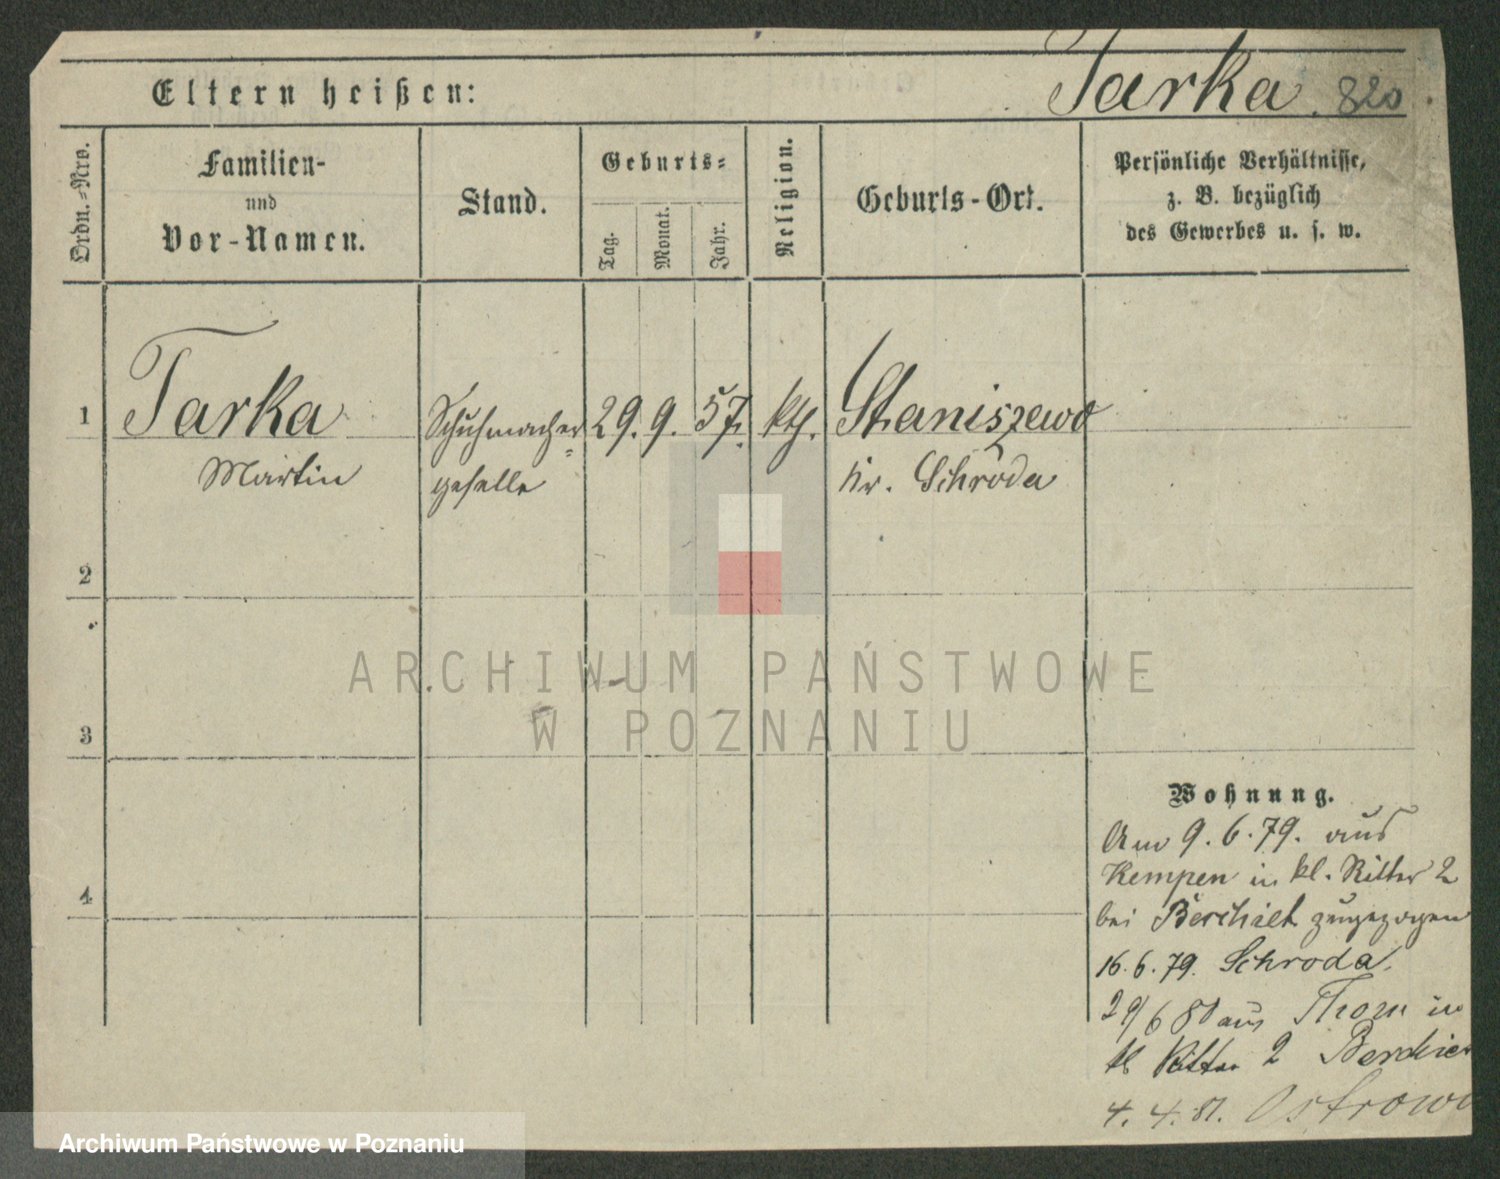 Eltern heißen:
Tarka. 820
Ordn.-Nro.
Familien-
und
Vor-Namen.
Stand.
Geburts-
Tag.
Monat.
Jahr.
Religion.
Geburts-Ort.
Persönliche Verhältnisse,
z. B. bezüglich
des Gewerbes u. s. w.
1 Tarka Schuhmacher= 29. 9. 57. kth. Staniszewo
Martin geselle Kr. Schroda
2
3
4
Wohnung.
Am 9. 6. 79. aus
Kempen in kl. Ritter 2
bei zugezogen
16. 6. 79. Schroda.
29/6 80 aus Thorn in
kl Ritter 2
4. 4. 81. Ostrowo
ARCHIWUM PAŃSTWOWE
W POZNANIU
Archiwum Państwowe w Poznaniu